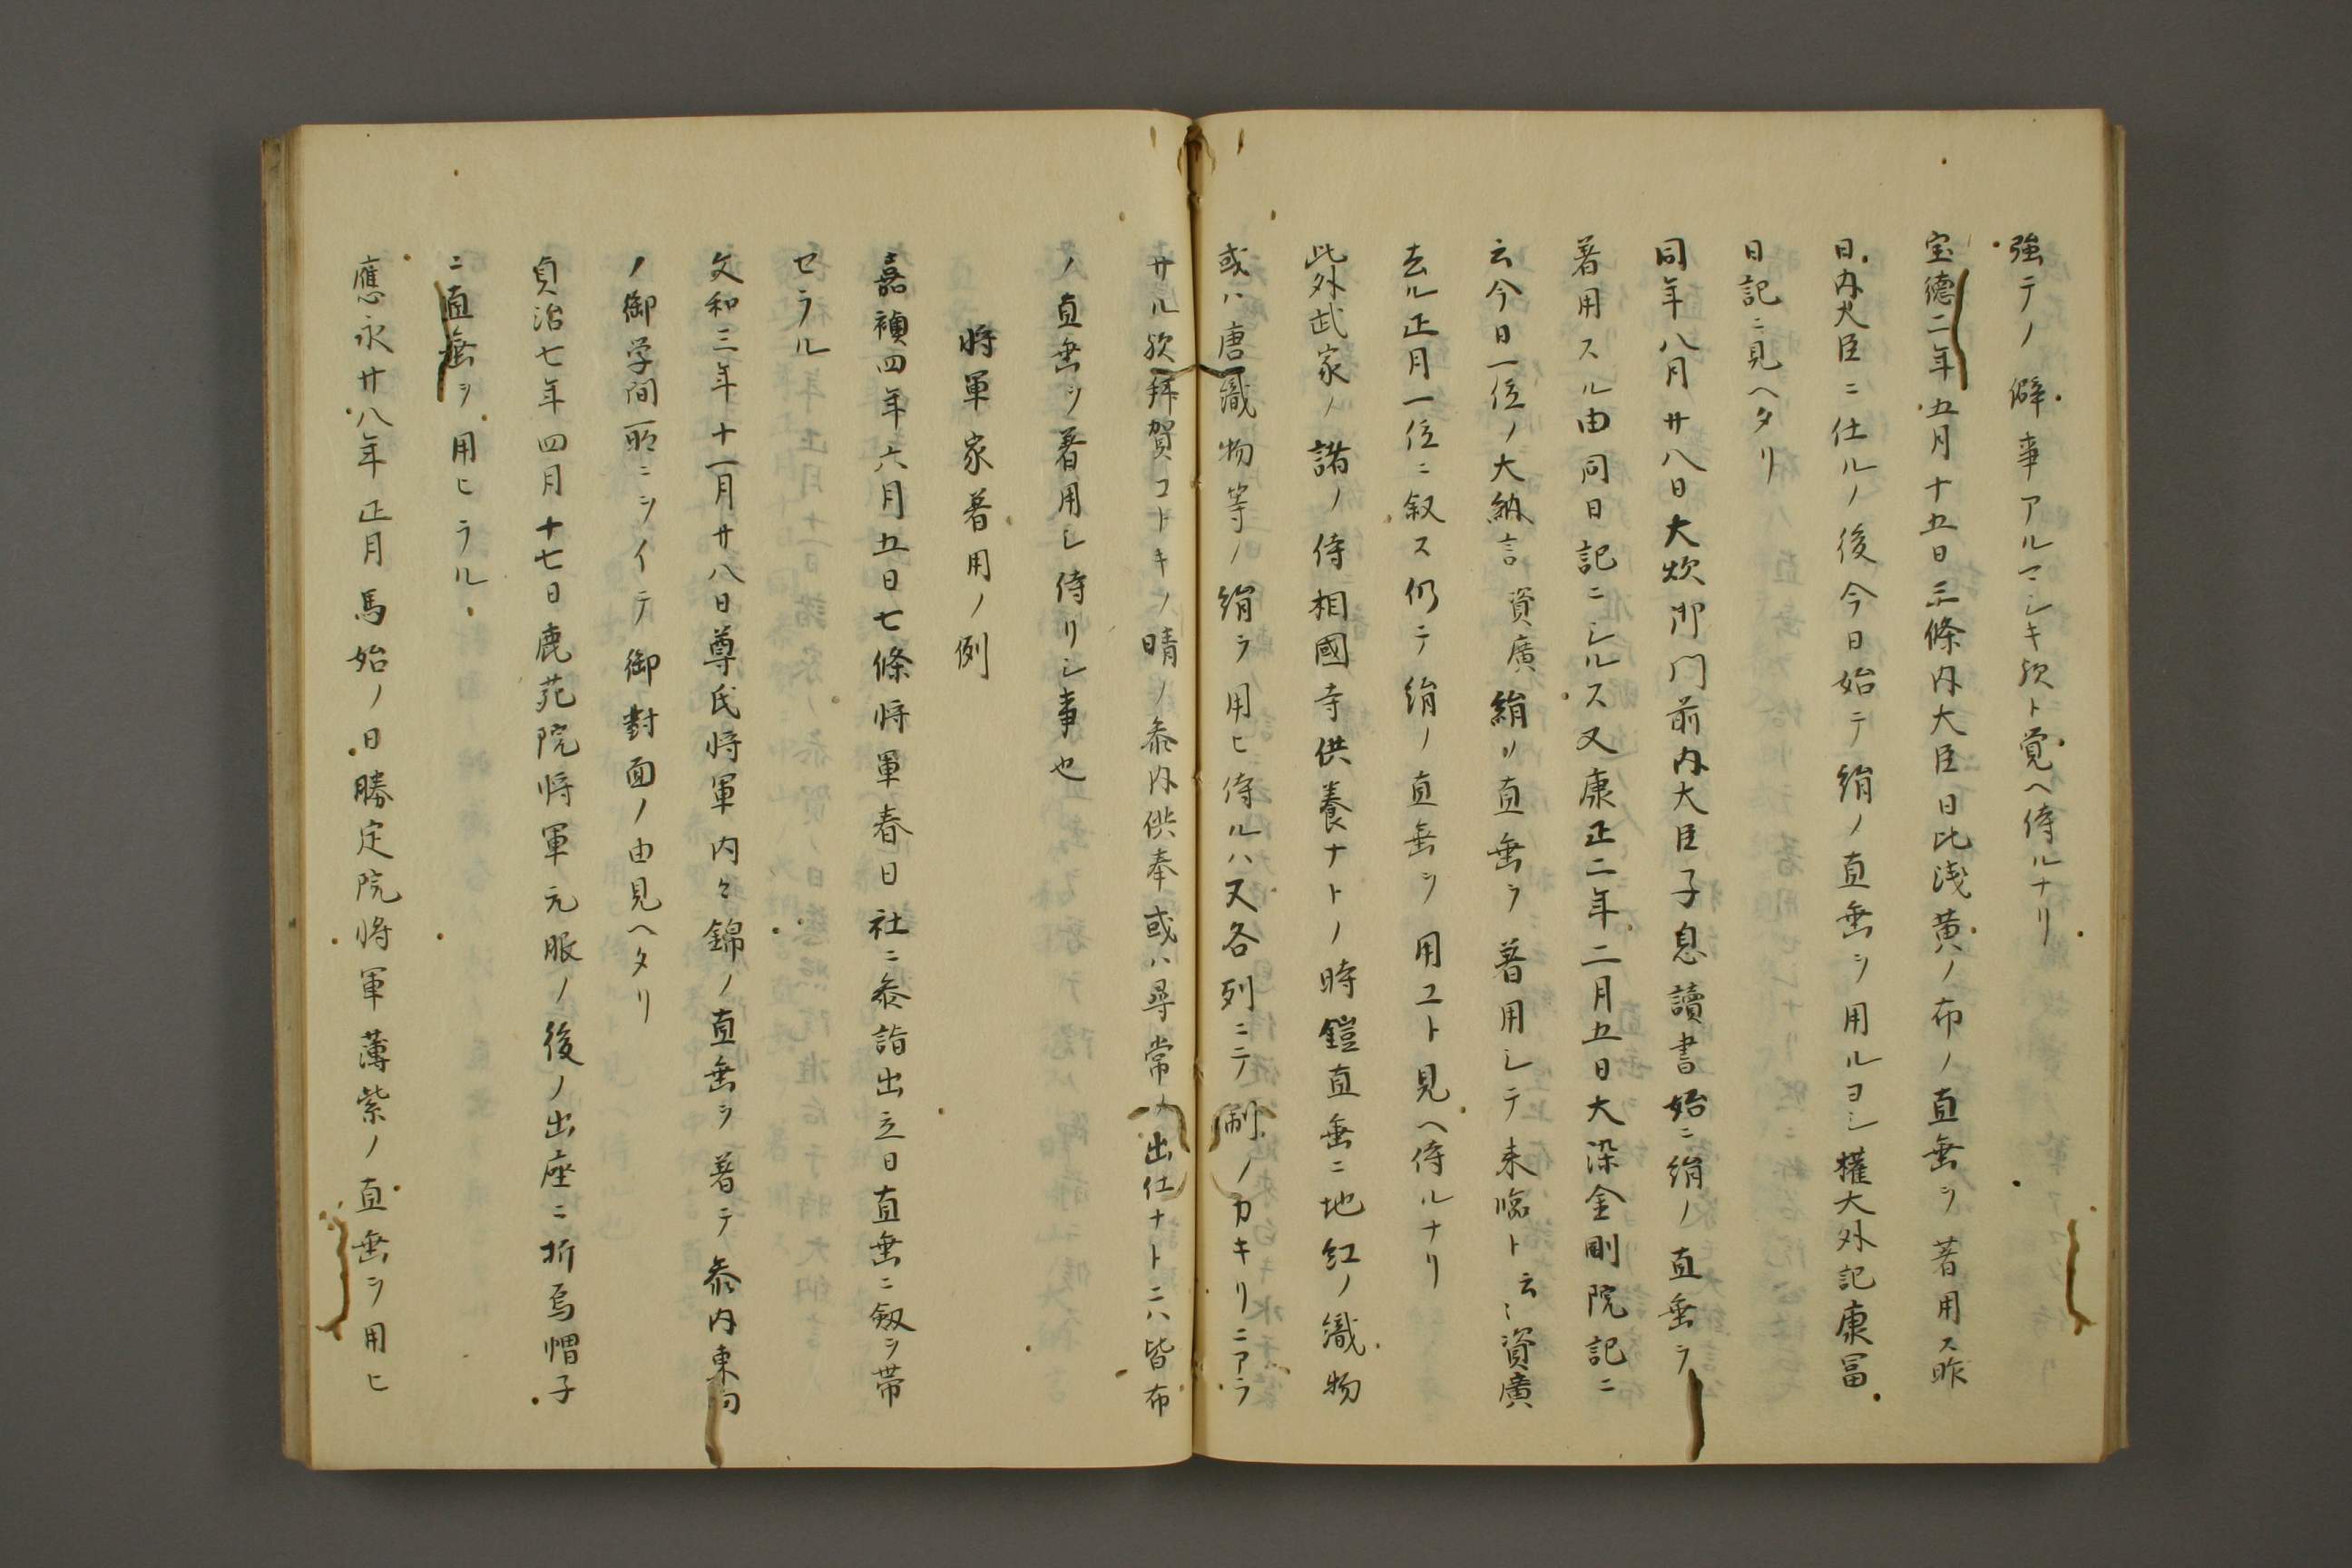 強テノ僻事アルマシキ欤ト覚ヘ侍ルナリ
宝徳二年五月十五日三條内大臣日比浅黄ノ布ノ直垂ヲ著用ス昨
日内大臣ニ仕ルノ後今日始テ絹ノ直垂ヲ用ルヨシ權大外記康冨
日記ニ見ヘタリ
同年八月廿八日大炊御門前内大臣子息讀書始ニ絹ノ直垂ヲ
著用スル由同日記ニシルス又康正二年二月五日大染金剛院記ニ
云今日一位ノ大納言資廣絹ノ直垂ヲ著用シテ来臨ト云〻資廣
去ル正月一位ニ叙ス仍テ絹ノ直垂ヲ用ユト見ヘ侍ルナリ
此外武家ノ諸ノ侍相國寺供養ナトノ時鎧直垂ニ地紅ノ織物
或ハ唐織物等ノ絹ヲ用ヒ侍ルハ又各列ニテ制ノカキリニアラ
サル欤拜賀コトキノ晴ノ参内供奉或ハ尋常ノ出仕ナトニハ皆布
ノ直垂ヲ著用シ侍リシ事也
将軍家著用ノ例
嘉禎四年六月五日七條将軍春日社ニ参詣出立日直垂ニ釼ヲ帯
セラル
文和三年十一月廿八日尊氏将軍内々錦ノ直垂ヲ著テ参内東向
ノ御学問所ニシイテ御對面ノ由見ヘタリ
貞治七年四月十七日鹿苑院将軍元服ノ後ノ出座ニ折烏帽子
ニ直垂ヲ用ヒラル
應永廿八年正月馬始ノ日勝定院将軍薄紫ノ直垂ヲ用ヒ